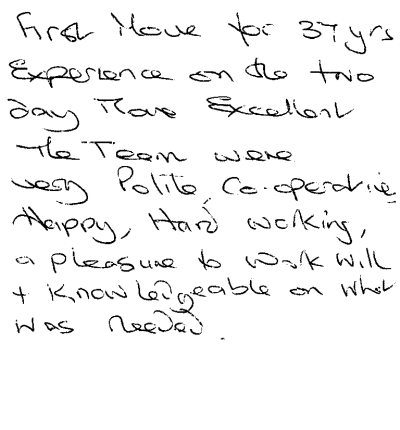 First Move for 37 yrs
Experience on the two
day Move Excellent
The Team were
very Polite, Co-operative,
Happy, Hard working,
a pleasure to work will
+ Knowledgeable on what
was needed.